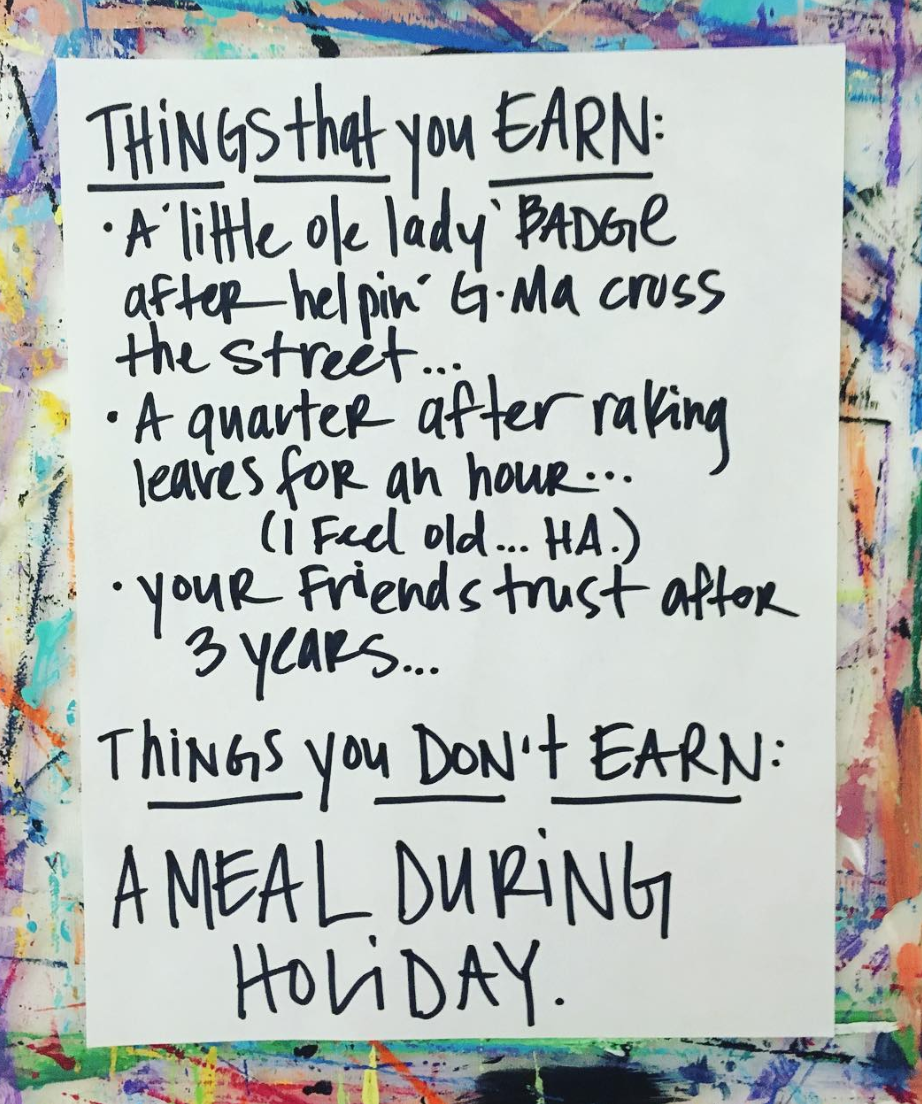 THiNGS that you EARN:
• A 'little ole lady' BADGe
after helpin' G.Ma cross
the street...
• A quarter after raking
leaves for an hour...
(I Feel old... HA.)
• your Friends trust after
3 years...
ThiNGS you DON't EARN:
A MEAL DURiNG
HoLiDAY.